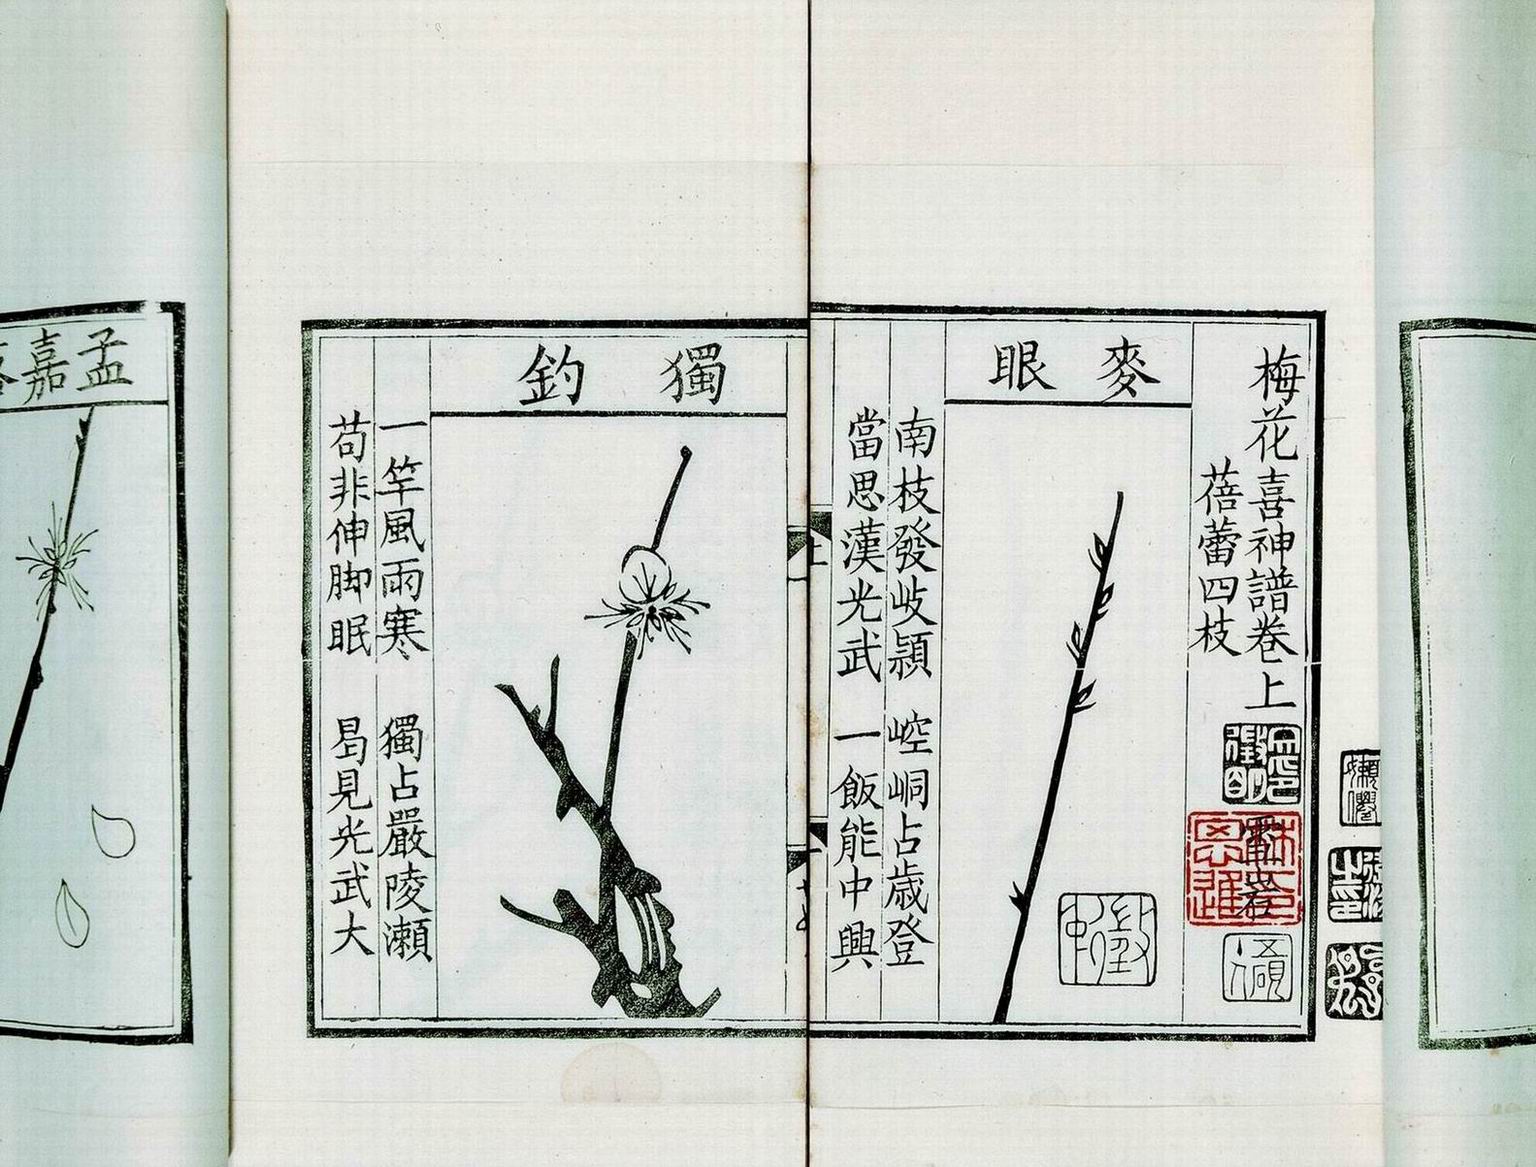 梅花喜神譜卷上
蓓蕾四枝
麥眼
南枝發岐穎 崆峒占歲登
當思漢光武 一飯能中興
上
獨釣
一竿風雨寒 獨占嚴陵瀨
苟非伸脚眠 曷見光武大
孟嘉落